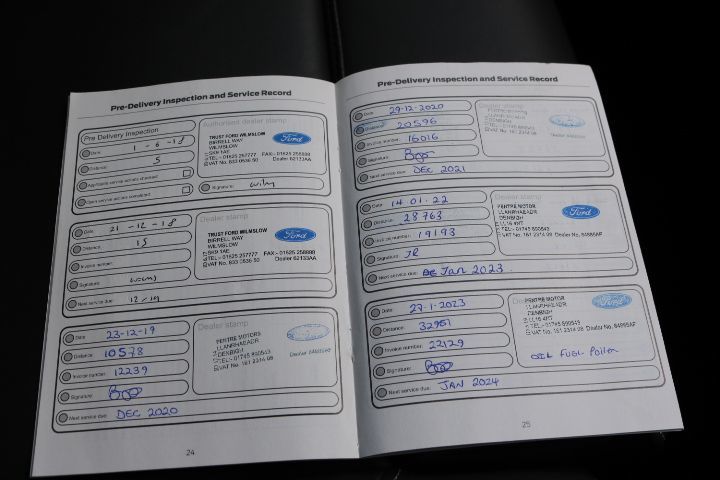 Pre-Delivery Inspection and Service Record
Pre Delivery Inspection
Date: 1-6-18
Distance: 5
Applicable service actions checked
Open service actions completed
Authorised dealer stamp
TRUST FORD WILMSLOW
BIRRELL WAY
WILMSLOW
SK9 1AE
TEL:- 01625 257777 FAX:- 01625 255888
VAT No. 833 0536 50 Dealer 62133AA
Ford
Signature:
Date: 21-12-18
Distance: 15
Invoice number:
Signature:
Next service due: 12/19
Dealer stamp
TRUST FORD WILMSLOW
BIRRELL WAY
WILMSLOW
SK9 1AE
TEL:- 01625 257777 FAX:- 01625 255888
VAT No. 833 0536 50 Dealer 62133AA
Ford
Date: 23-12-19
Distance: 10578
Invoice number: 12239
Signature:
Next service due: DEC 2020
Dealer stamp
PENTRE MOTORS
LLANRHAEADR
DENBIGH
TEL:- 01745 890543
VAT No. 161 2314 08
24
Pre-Delivery Inspection and Service Record
Date: 29-12-2020
Distance: 20596
Invoice number: 16016
Signature:
Next service due: DEC 2021
Dealer stamp
PENTRE MOTORS
LLANRHAEADR
DENBIGH
TEL:- 01745 890543
VAT No. 161 2314 08
Date: 14.01.22
Distance: 28763
Invoice number: 19193
Signature: JR
Next service due: Jan 2023.
PENTRE MOTOR
LLANRHAEADR
DENBIGH
LL16 4NT
TEL:- 01745 890543
VAT No. 161 2314 08 Dealer No. 84895AF
Ford
Date: 27-1-2023
Distance: 32951
Invoice number: 22129
Signature:
Next service due: JAN 2024
PENTRE MOTOR
LLANRHAEADR
DENBIGH
LL16 4NT
TEL:- 01745 890543
VAT No. 161 2314 08 Dealer No. 84895AF
Ford
OIL FUEL Pollen
25